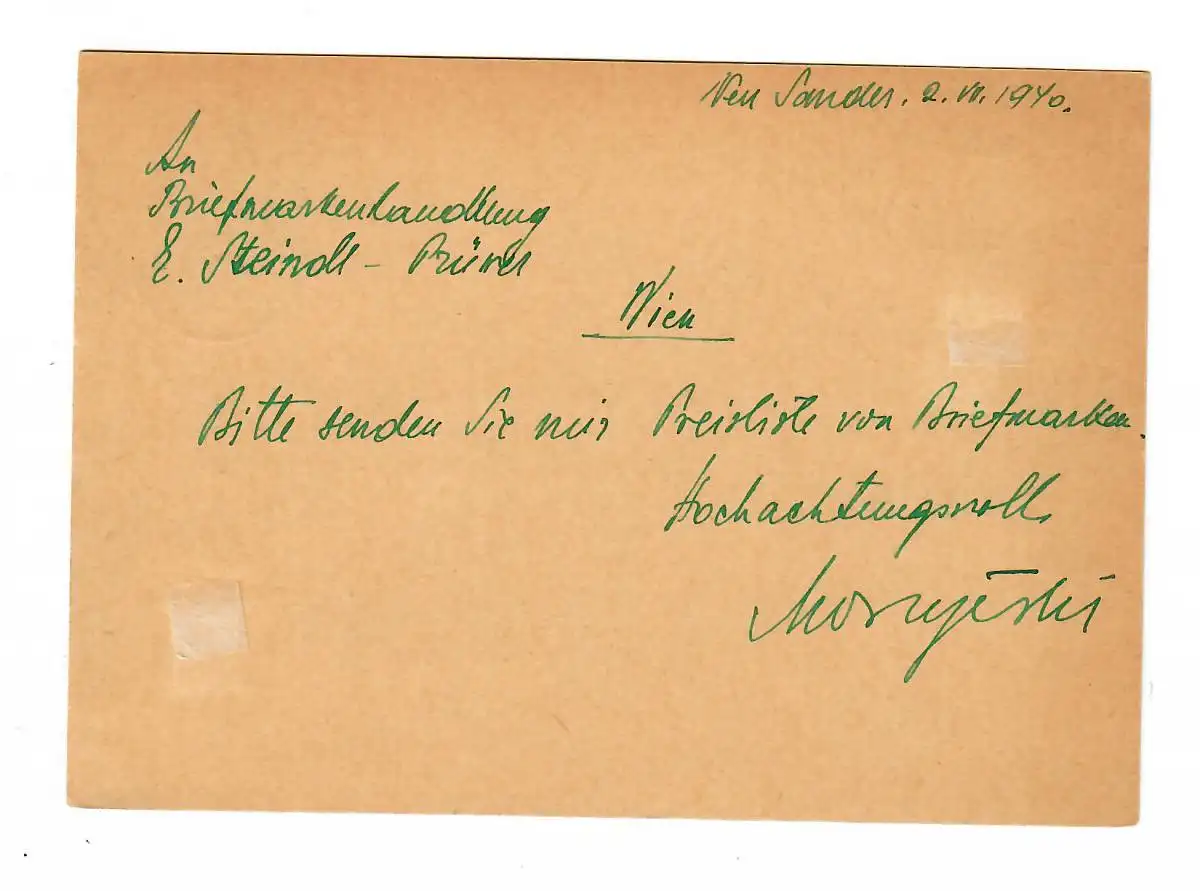 Neu Sandez. 2. VII. 1940.
An
Briefmarkenhandlung
E. Steindl -
Wien
Bitte senden Sie mir Preisliste von Briefmarken.
Hochachtungsvoll